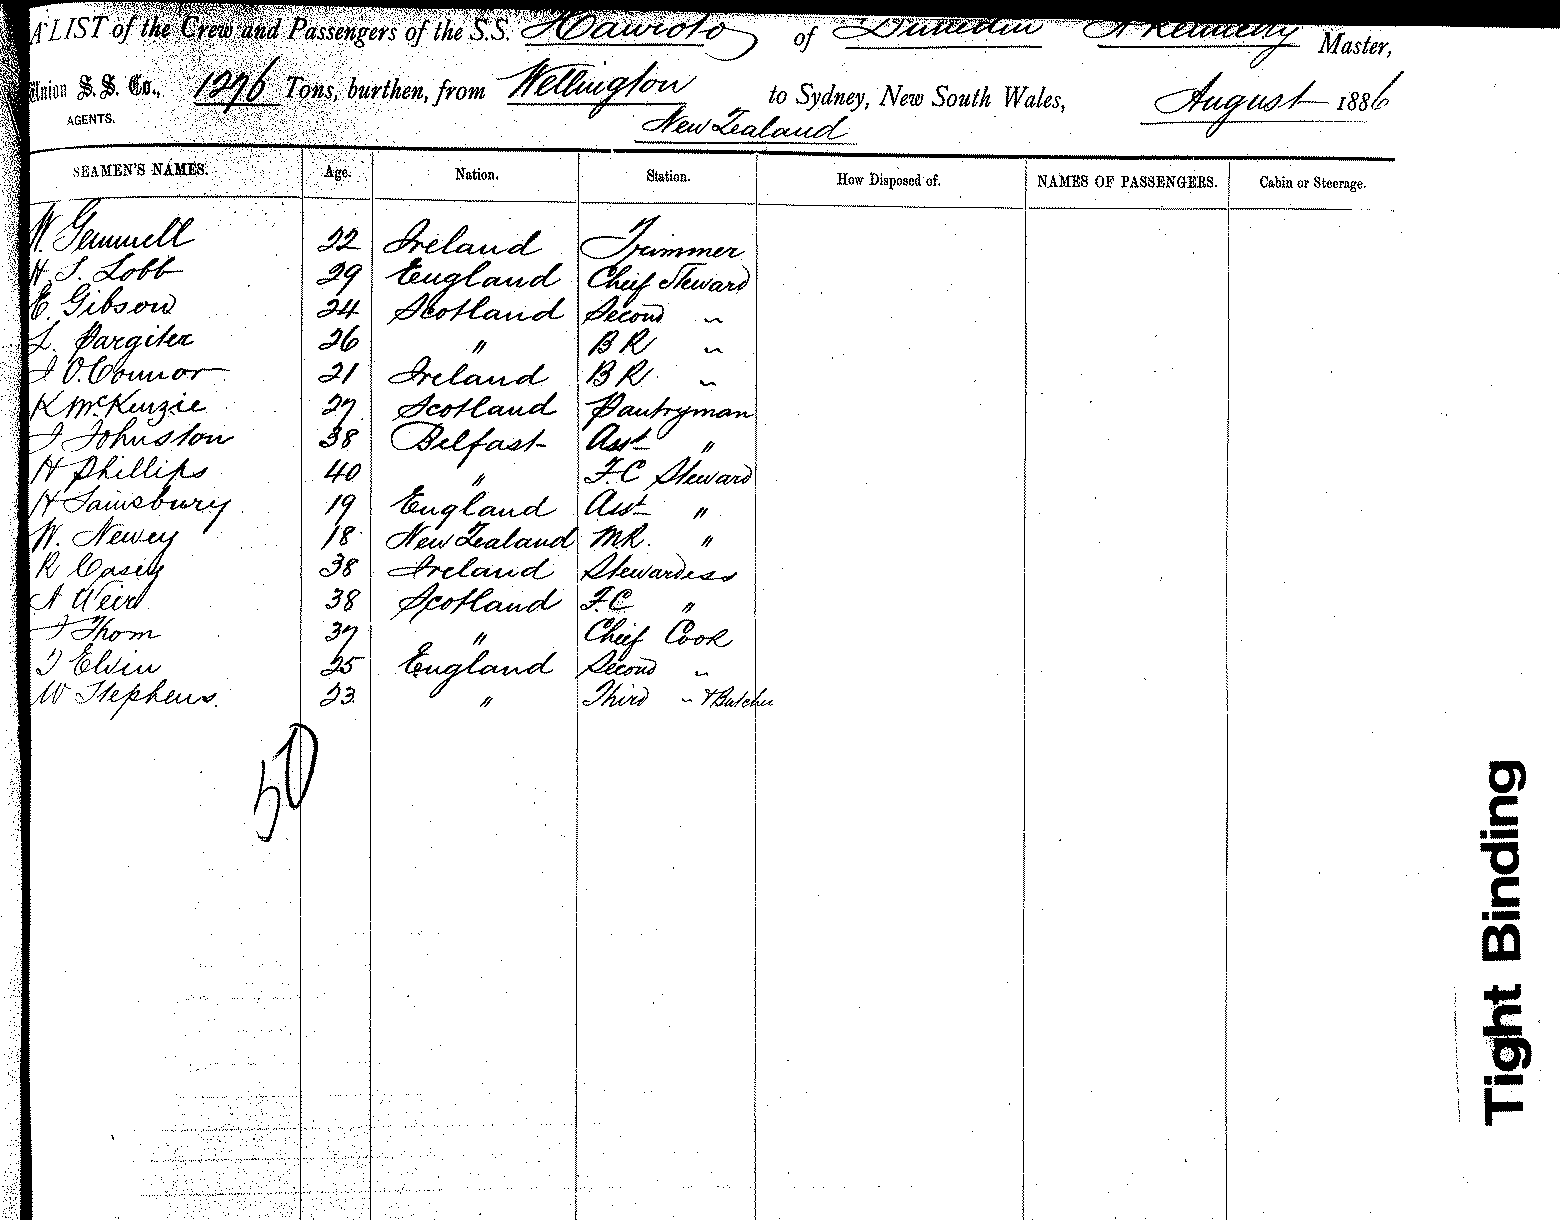 A LIST of the Crew and Passengers of the S.S. Hauroto of Dunedin A Kennedy Master,
Union S. S. Co., 1276 Tons, burthen, from Wellington to Sydney, New South Wales, August 1886
AGENTS. New Zealand
SEAMEN'S NAMES. Age. Nation. Station. How Disposed of. NAMES OF PASSENGERS. Cabin or Steerage.
W. Gemmell 22 Ireland Trimmer
H S. Lobb 29 England Chief Steward
E. Gibson 24 Scotland Second "
L. Pargiter 26 " B R "
J O.Connor 21 Ireland B R "
K McKenzie 27 Scotland Pantryman
J Johnston 38 Belfast Asst "
H Phillips 40 " F.C Steward
H Sainsbury 19 England Asst "
W. Newey 18 New Zealand M R. "
R Casey 38 Ireland Stewardess
A Weir 38 Scotland F.C "
J Thom 37 " Chief Cook
T Elvin 25 England Second "
W Stephens. 23 " Third " & Butcher
50
Tight Binding